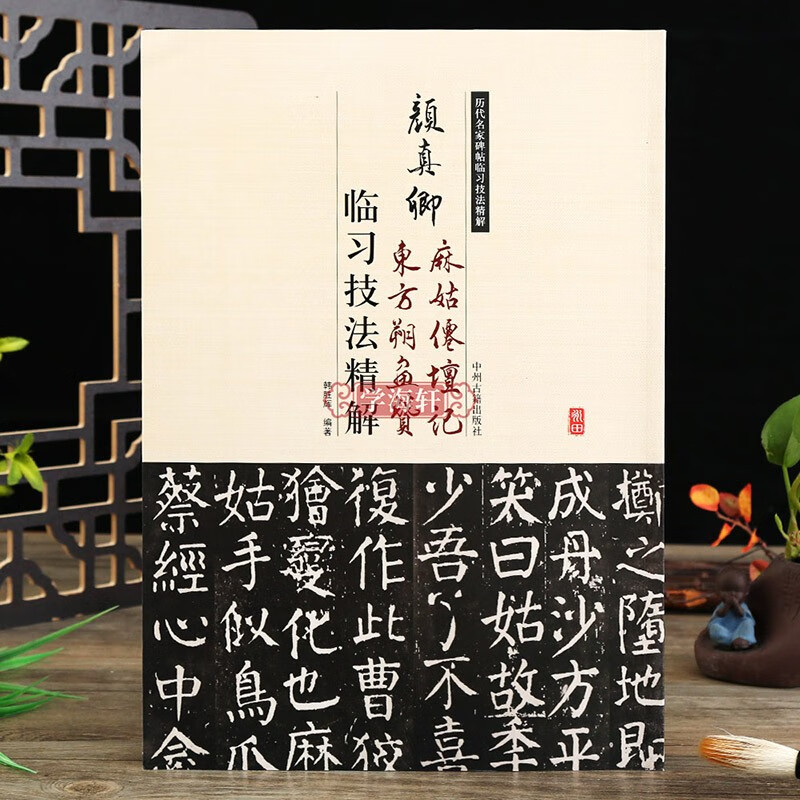 历代名家碑帖临习技法精解
中州古籍出版社
顔真卿
麻姑僊壇记
東方朔畫贊
临习技法精解
编著
学海轩
擲之墮地即
成丹沙方平
笑曰姑故年
少吾了不喜
復作此曹狡
獪變化也麻
姑手似鳥爪
蔡經心中念